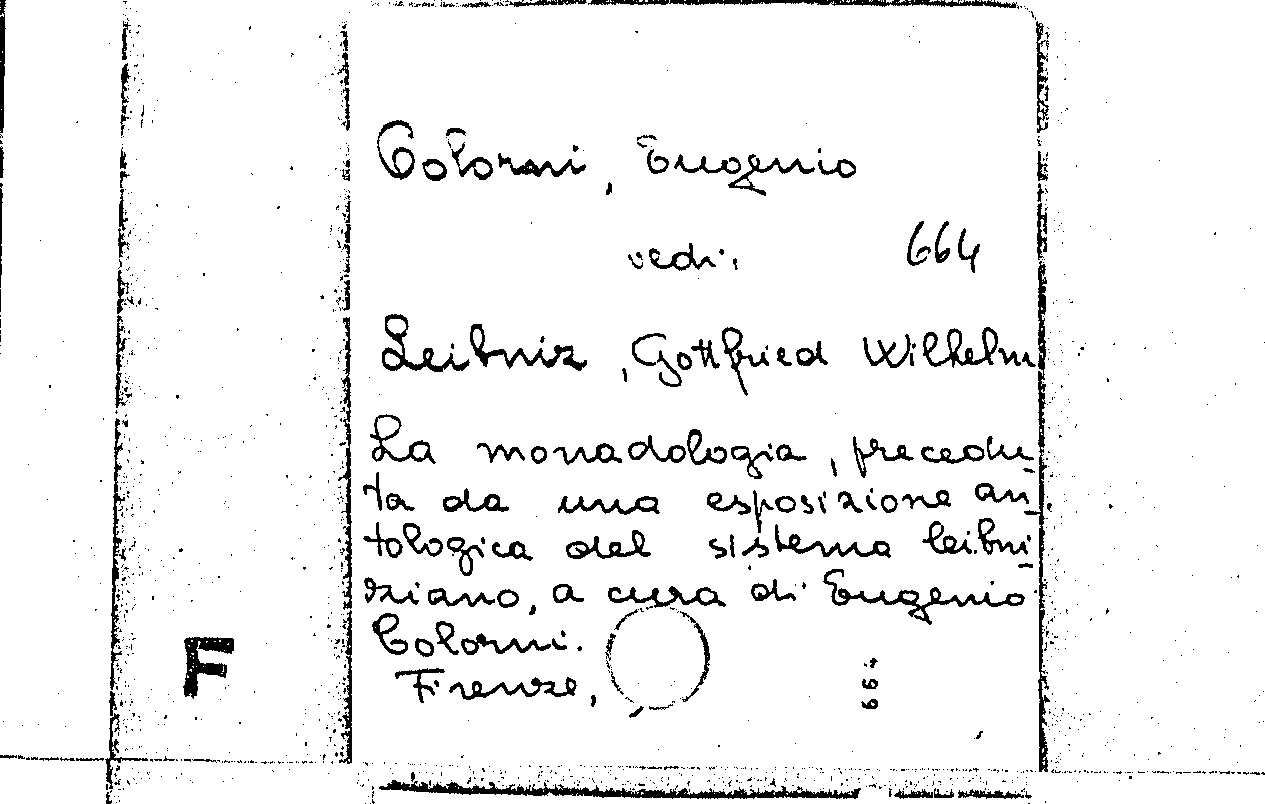 Colorni, Eugenio
vedi: 664
Leibniz, Gottfried Wilhelm
La monadologia, precedu-
ta da una esposizione an-
tologica del sistema leibni-
ziano, a cura di Eugenio
Colorni.
Firenze,
664
F